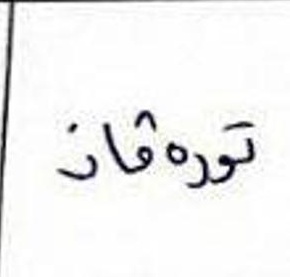 تورە ڤان